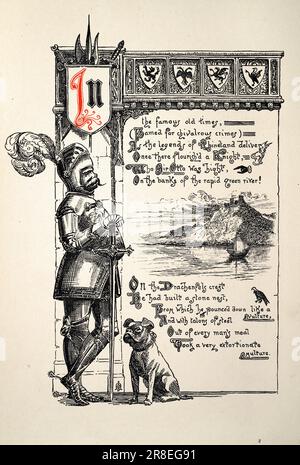 In
the famous old times,
(Famed for chivalrous crimes)
As the legends of Rhineland deliver,
Once there flourish'd a Knight,
Who Sir Otto was hight,
On the banks of the rapid green river!
On the Drachenfels crest
He had built a stone nest,
From which he pounced down like a
vulture,
And with talons of steel
Out of every man's meal
Took a very extortionate
multure.
alamy
Image ID: 2R8EG91
www.alamy.com